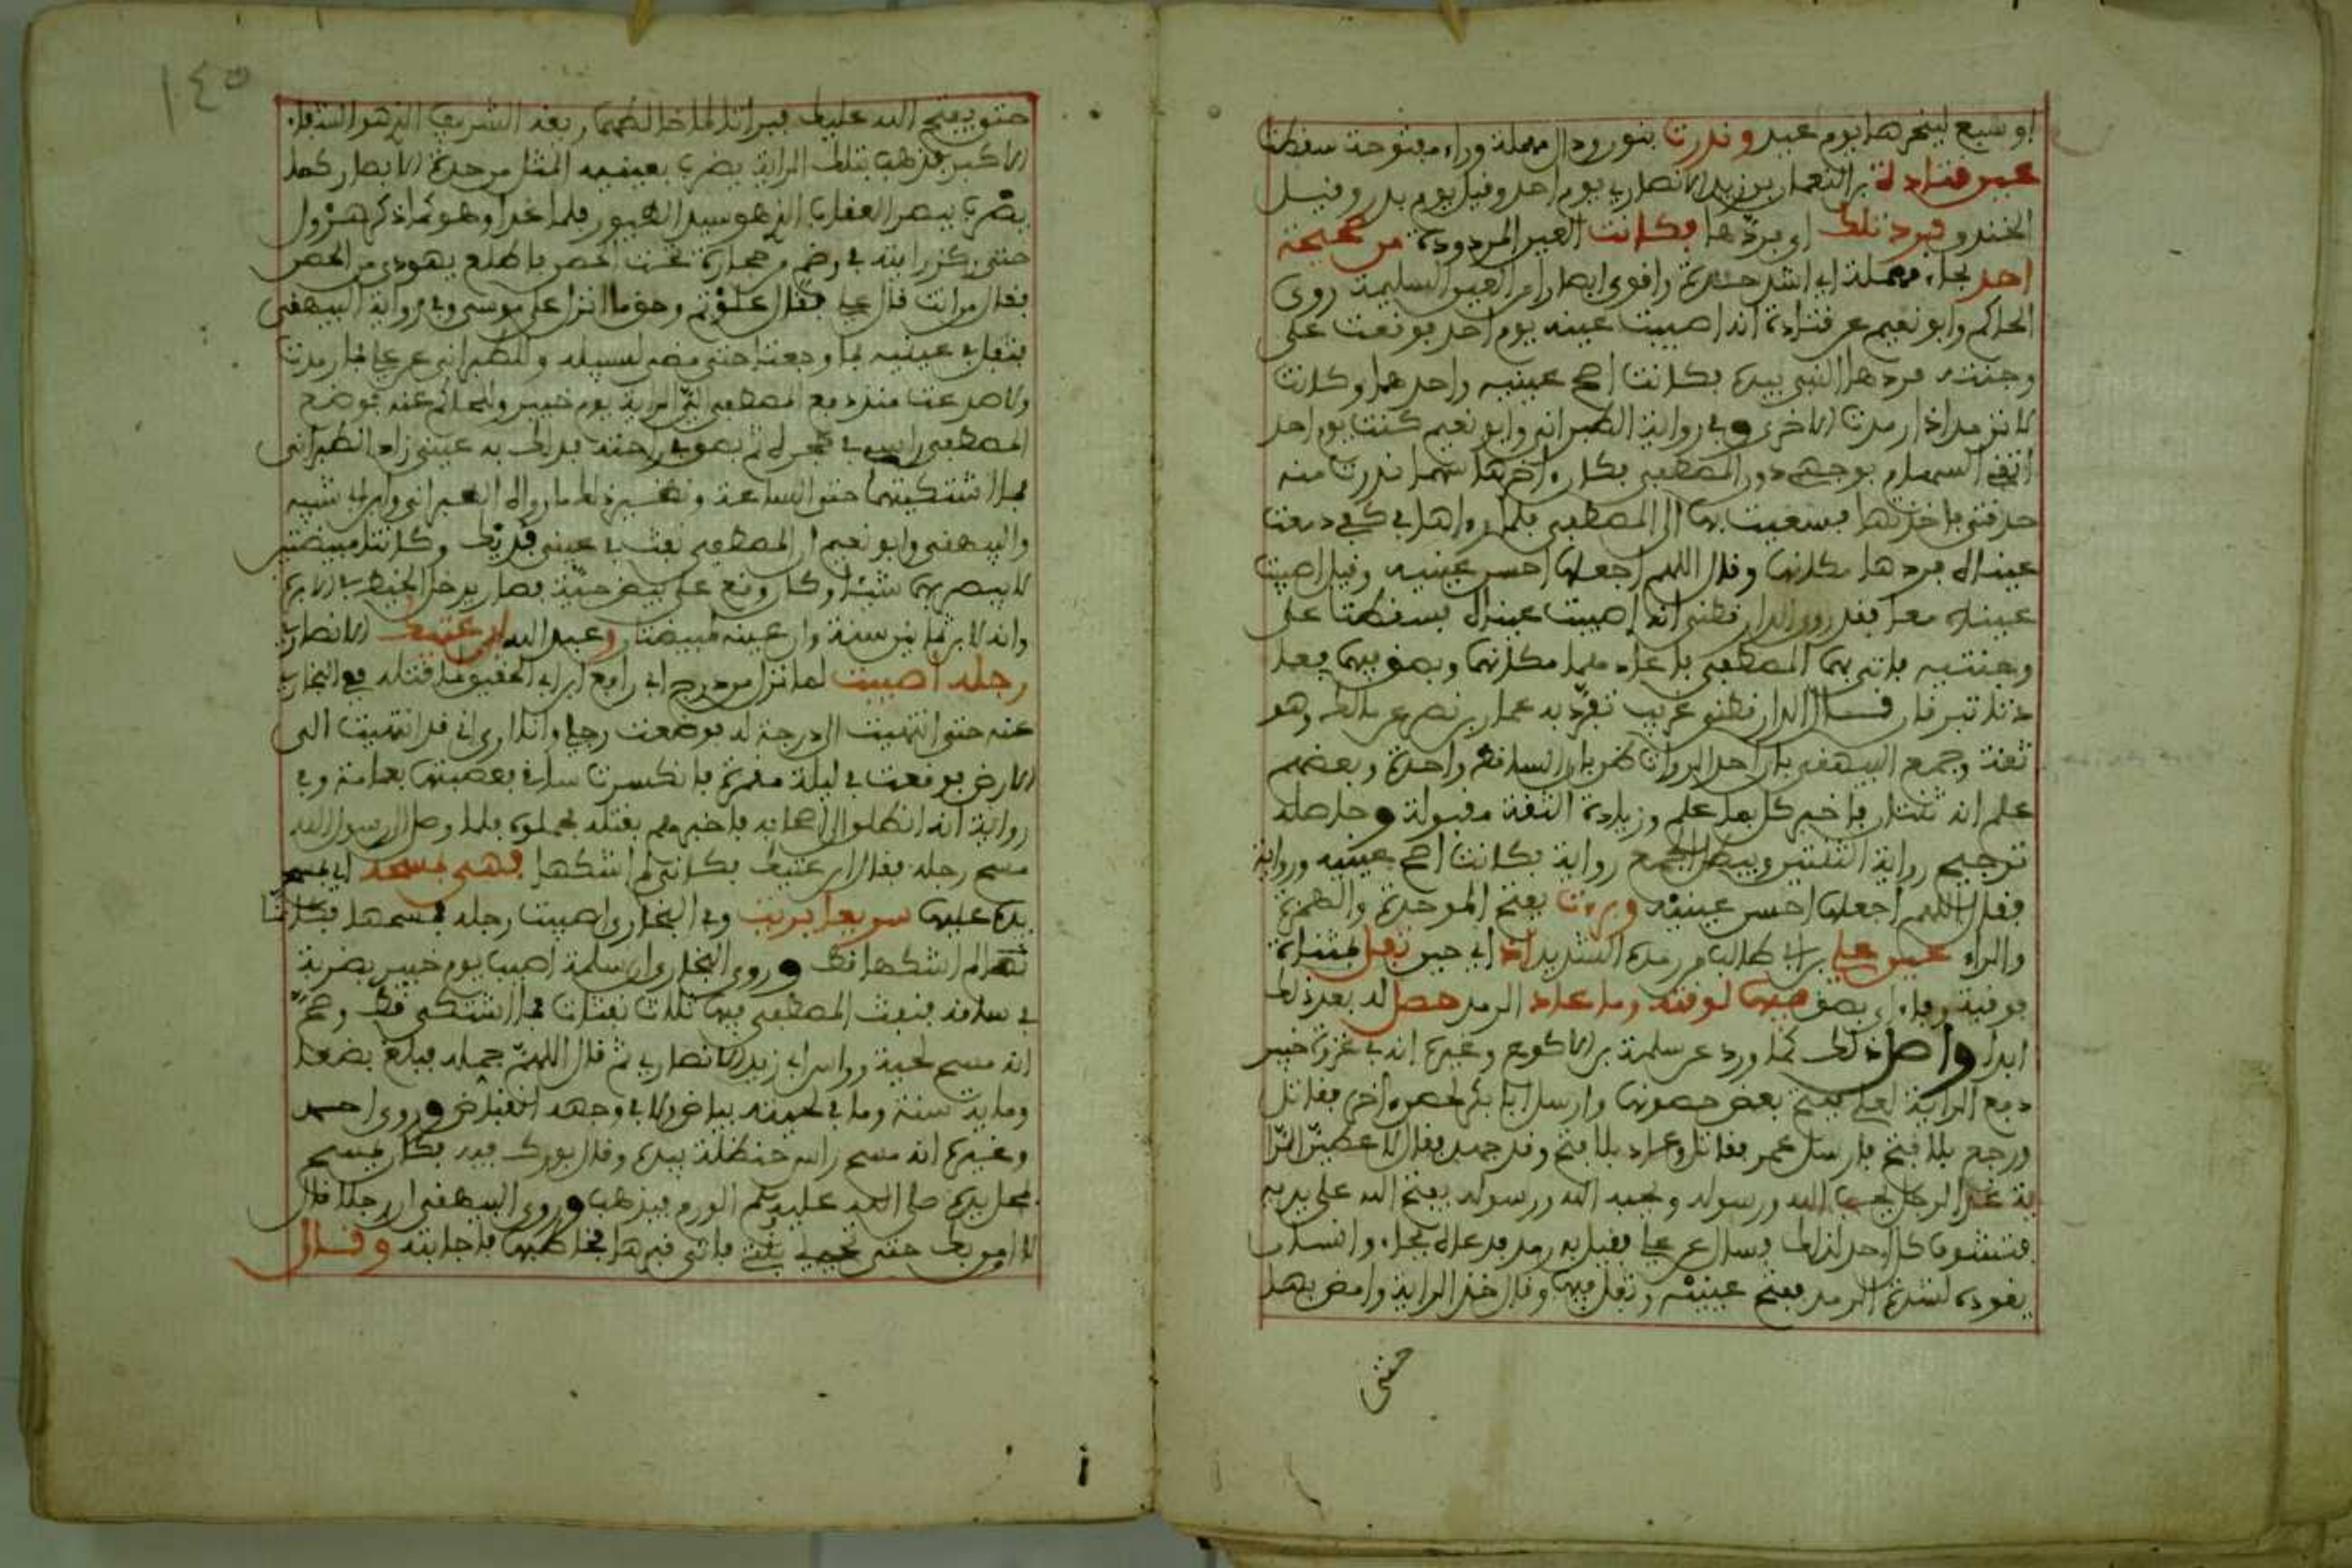 او سبع لينحرها يوم عيد وندرت بنون ودال مهملة وراء مفتوحة سقطت
عين قتادة بن النعمان بن زيد الانصاري يوم احد وقيل يوم بدر وقيل
الخندق فرد تلك اي بردها فكانت العين المردودة من صحيحة
احد بحاء مهملة اي اشد حدة واقوى ابصارا من العين السليمة روى
الحاكم وابو نعيم عن قتادة انه اصيبت عينه يوم احد فوقعت على
وجنته فردها النبي بيده فكانت اصح عينيه واحدهما وكانت
لا ترمد اذا رمدت الاخرى وفي رواية الطبراني وابو نعيم كنت يوم احد
اتقي السهام بوجهي دون المصطفى فكان اخرها سهما ندرت منه
حدقتي فاخذتها فسعيت بها الى المصطفى فلما رءاها في كفي دمعت
عيناه فردها مكانها وقال اللهم اجعلها احسن عينيه وقيل اصيبت
عيناه معا فقد روى الدارقطني انه اصيبت عيناه فسقطتا على
وجنتيه فاتى بهما المصطفى فاعادهما مكانهما وبصق فيهما فعادتا
تبرقان قال الدارقطني غريب تفرد به عمار بن نصر عن مالك وهو
ثقة وجمع البيهقي بان احد الرواة ظن بان الساقط واحدة وبعضهم
علم انه ثنتان فاخبر كل بما علم وزيادة الثقة مقبولة وحاصله
ترجيح رواية الثنتين ويبطل الجمع رواية فكانت اصح عينيه ورواية
فقال اللهم اجعلها احسن عينيه وبرءت بفتح الموحدة والهمزة
والراء عين علي بن ابي طالب من رمده الشديد اذ اي حين تفل بمثناة
فوقية وفاء اي بصق فيها لوقته وما عاد الرمد حصل له بعد ذلك
ابدا واصل ذلك كما ورد عن سلمة بن الاكوع وغيره انه في غزوة خيبر
دفع الراية لعلي بفتح بعض حصونها وارسل ابا بكر لحصن اخر فقاتل
ورجع بلا فتح فارسل عمر فقاتل وعاد بلا فتح وقد جهد فقال لاعطين الرا
ية غدا لرجل يحب الله ورسوله ويحبه الله ورسوله يفتح الله على يديه
فتشوف كل احد لذلك وسال عن علي فقيل به رمد فدعاه فجاء وانسان
يقوده لشدة الرمد ففتح عينيه وتفل فيها وقال خذ الراية وامض بها
حتى
١٤٥
حتى يفتح الله عليك فبرأتا لما خالطهما ريقه الشريف الذي هو الشفاء
الاكبر فذهب بتلك الراية يضرب بعينيه المثل من حدة الابصار كما
يضرب ببصر العقاب الذي هو سيد الطيور فلما اخذها وهو كما ذكر هرول
حتى ركز رايته في رضم من حجارة تحت الحصن فاطلع يهودي من الحصن
فقال من انت قال علي فقال علوتم وحق ما انزل على موسى وفي رواية البيهقي
فتفل في عينيه فما وجعتا حتى مضى لسبيله وللطبراني عن علي فما رمدت
ولا صدعت منذ دفع المصطفى الي الراية يوم خيبر وللحاكم عنه فوضع
المصطفى راسي في حجره ثم بصق في راحته فدلك به عيني زاد الطبراني
فما اشتكيتهما حتى الساعة ونظير ذلك ما رواه الطبراني وابن ابي شيبة
والبيهقي وابو نعيم ان المصطفى نفث في عيني فديك وكانتا مبيضتين
لا يبصر بهما شيئا وكان وقع على بيض حية فصار يدخل الخيط في الابرة
وانه لابن ثمانين سنة وان عينيه لمبيضتان وعبد الله ابن عتيك الانصاري
رجله اصيبت لما نزل من درج ابي رافع ابن ابي الحقيق لما قتله ففي البخاري
عنه حتى انتهيت الى درجة له فوضعت رجلي وانا ارى اني قد انتهيت الى
الارض فوقعت في ليلة مقمرة فانكسرت ساقي فعصبتها بعمامة وفي
رواية انه انطلق الى اصحابه فاخبرهم بقتله فحملوه فلما وصل الى رسول الله
مسح رجله فقال ابن عتيك فكاني لم اشتكها فهي بمسحه اي بمسح
يده عليها سريعا برئت وفي البخاري اصيبت رجله فمسحها فكانها
لم اشتكها قط وروى البخاري ان سلمة اصيب يوم خيبر بضربة
في ساقه فنفث المصطفى فيها ثلاث نفثات فما اشتكى قط وصح
انه مسح لحية وراس ابي زيد الانصاري ثم قال اللهم جمله فبلغ بضعا
وماية سنة وما في لحيته بياض ولا في وجهه انقباض وروى احمد
وغيره انه مسح راس حنظلة بيده وقال بورك فيه فكان يمسح
محل يده صلى الله عليه وسلم الورم فيذهب وروى البيهقي ان رجلا قال
لا اومن بك حتى تحيي بنتي فاتى قبرها فخاطبها فاجابته وقال